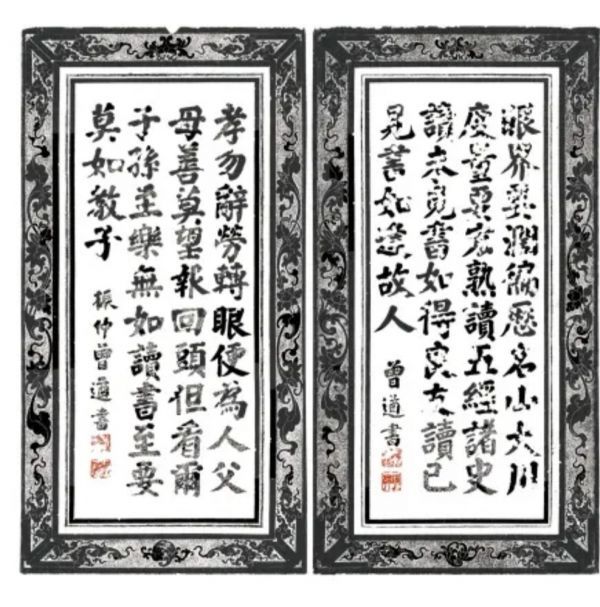 眼界要濶徧歷名山大川
度量要宏熟讀五經諸史
讀未見書如得良友讀已
見書如逢故人
曾迺書
孝勿辭勞轉眼便為人父
母善莫望報回頭但看爾
子孫至樂無如讀書至要
莫如教子
振仲曾迺書